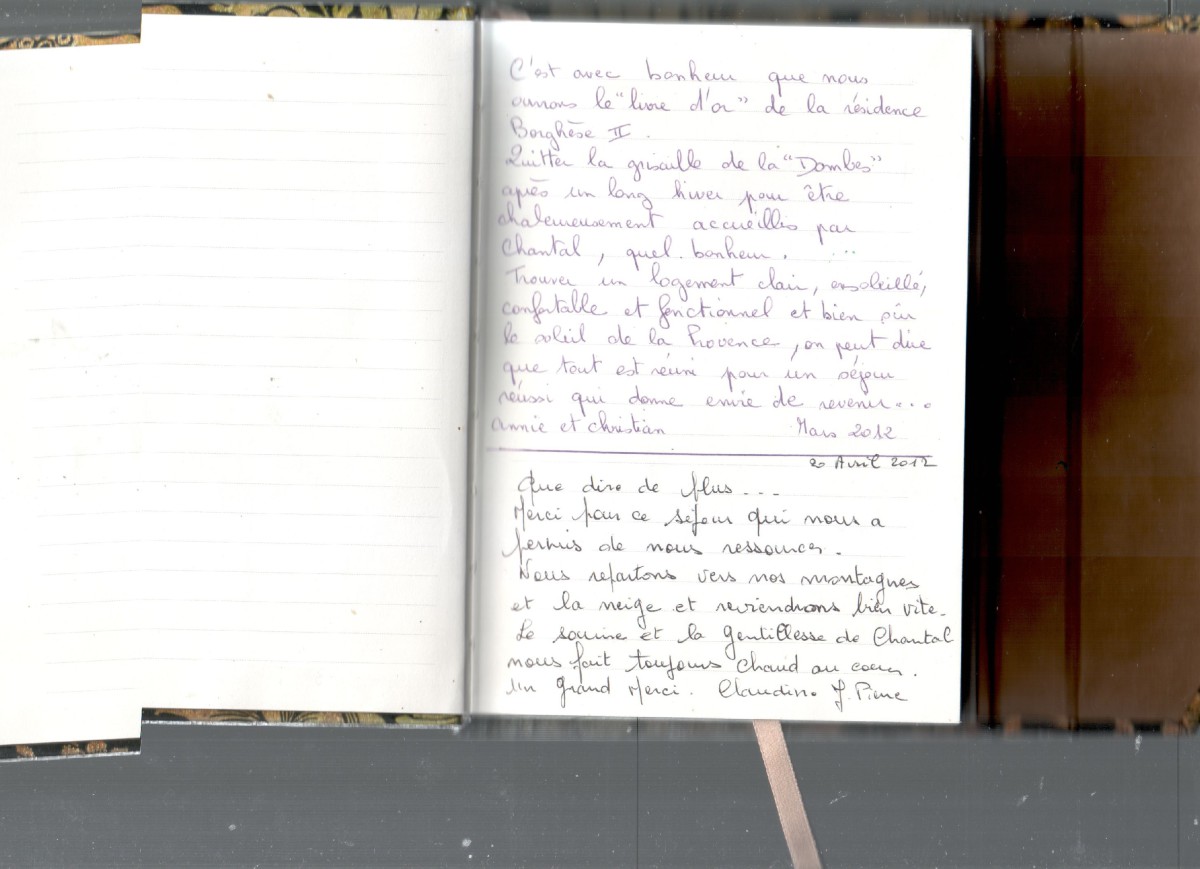 C'est avec bonheur que nous
ouvrons le "livre d'or" de la résidence
Borghèse II.
Quitter la grisaille de la "Dombes"
après un long hiver pour être
chaleureusement accueillis par
Chantal, quel bonheur. ...
Trouver un logement clair, ensoleillé,
confortable et fonctionnel et bien sûr
le soleil de la Provence, on peut dire
que tout est réuni pour un séjour
réussi qui donne envie de revenir...
Annie et Christian Mars 2012
20 Avril 2012
Que dire de plus...
Merci pour ce séjour qui nous a
permis de nous ressourcer.
Nous repartons vers nos montagnes
et la neige et reviendrons bien vite.
Le sourire et la gentillesse de Chantal
nous fait toujours chaud au coeur.
Un Grand Merci. Claudine J. Pierre